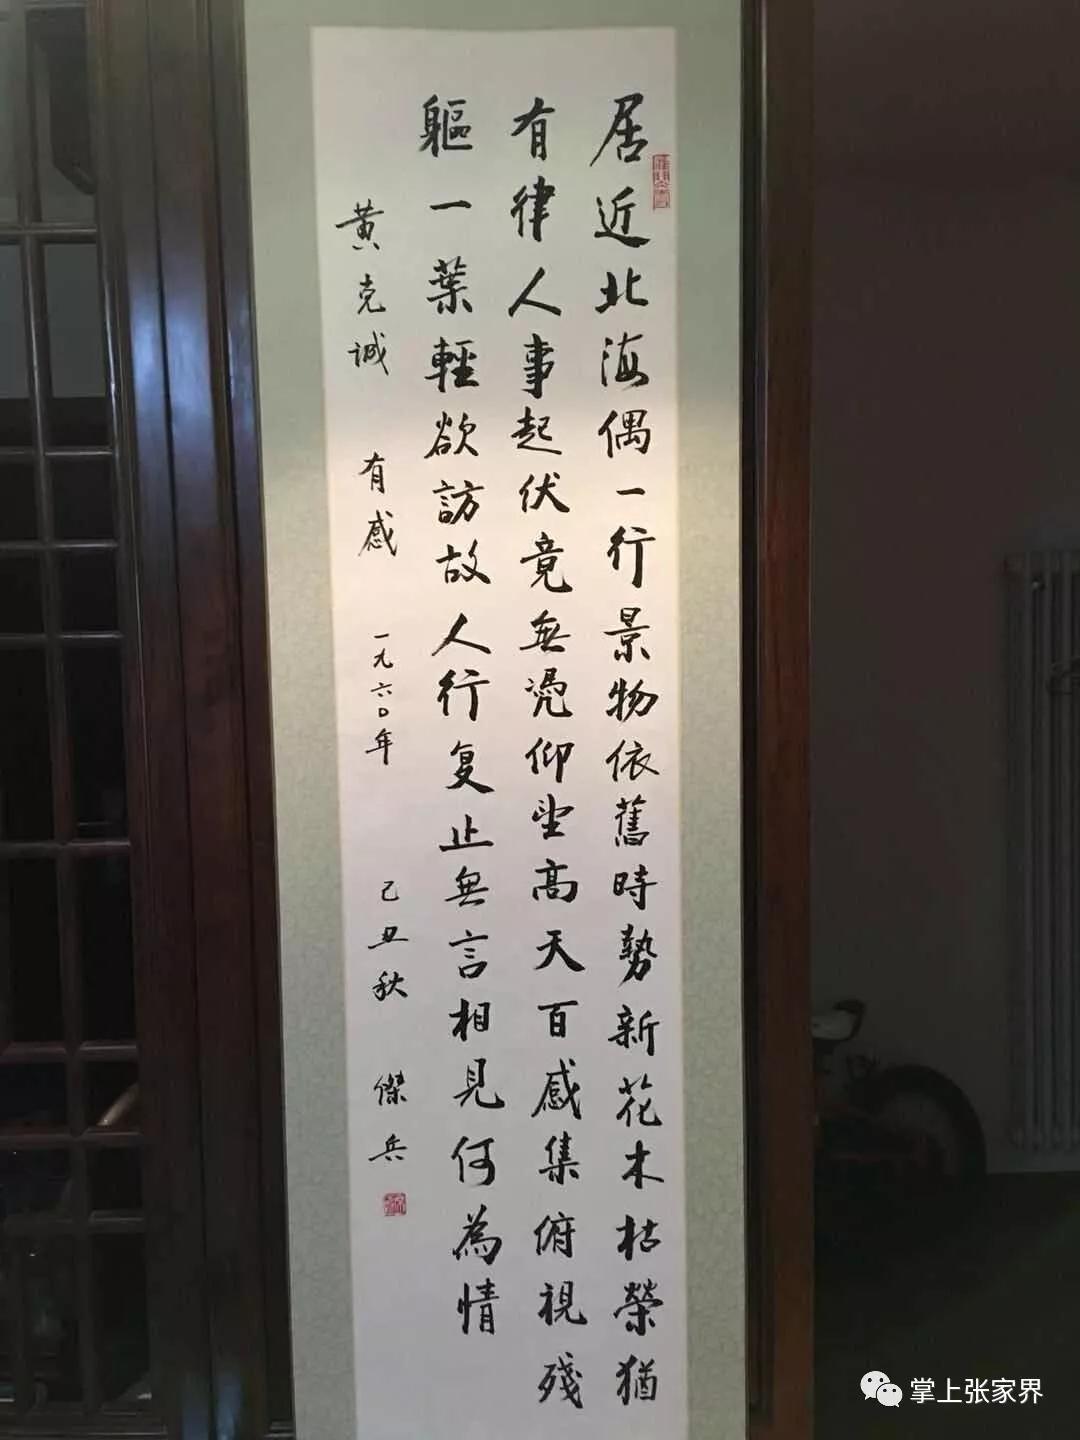 居近北海偶一行景物依舊時勢新花木枯榮猶
有律人事起伏竟無憑仰望高天百感集俯視殘
軀一葉輕欲訪故人行复止無言相見何為情
黄克诚 有感 一九六〇年 己丑秋 傑兵
掌上张家界